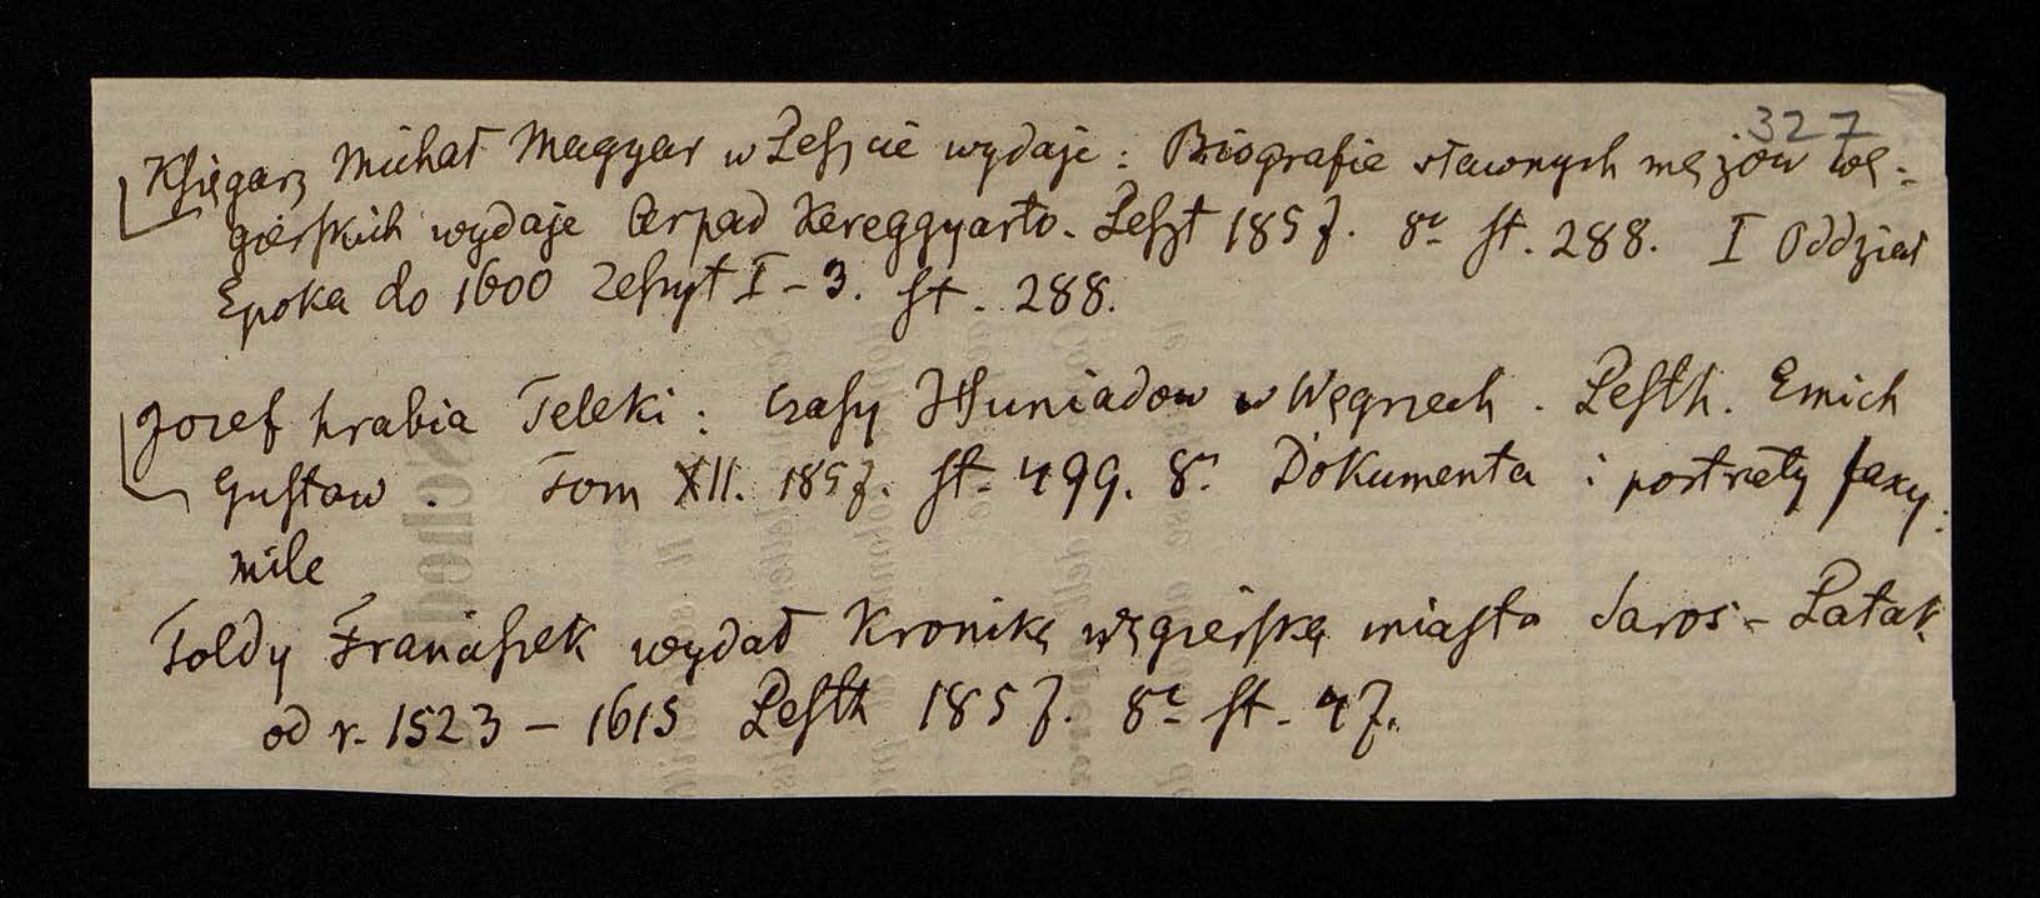 327
Księgarz Michał Magyar w Peszcie wydaje: Biografie sławnych mężów wę-
gierskich wydaje Arpad Kereggyarto. Peszt 1857. 8° st. 288. I Oddział
Epoka do 1600 Zeszyt I-3. st. 288.
Jozef hrabia Teleki: czasy Huniadow w Węgrzech. Pesth. Emich
Gustaw. Tom XII. 1857. st. 499. 8° Dokumenta i portrety faxy-
mile
Toldy Franciszek wydał Kronikę węgierską miasta Saros-Patak
od r. 1523-1615 Pesth 1857. 8° st. 47.